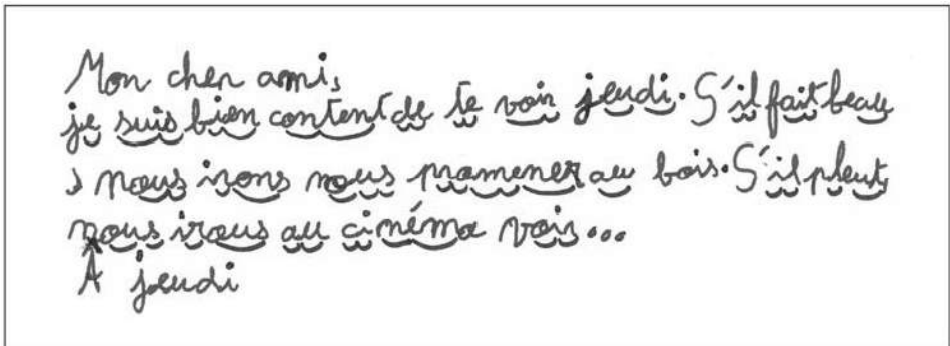 Mon cher ami,
je suis bien content de te voir jeudi. S'il fait beau
, nous irons nous promener au bois. S'il pleut,
nous irous au cinéma voir...
À jeudi